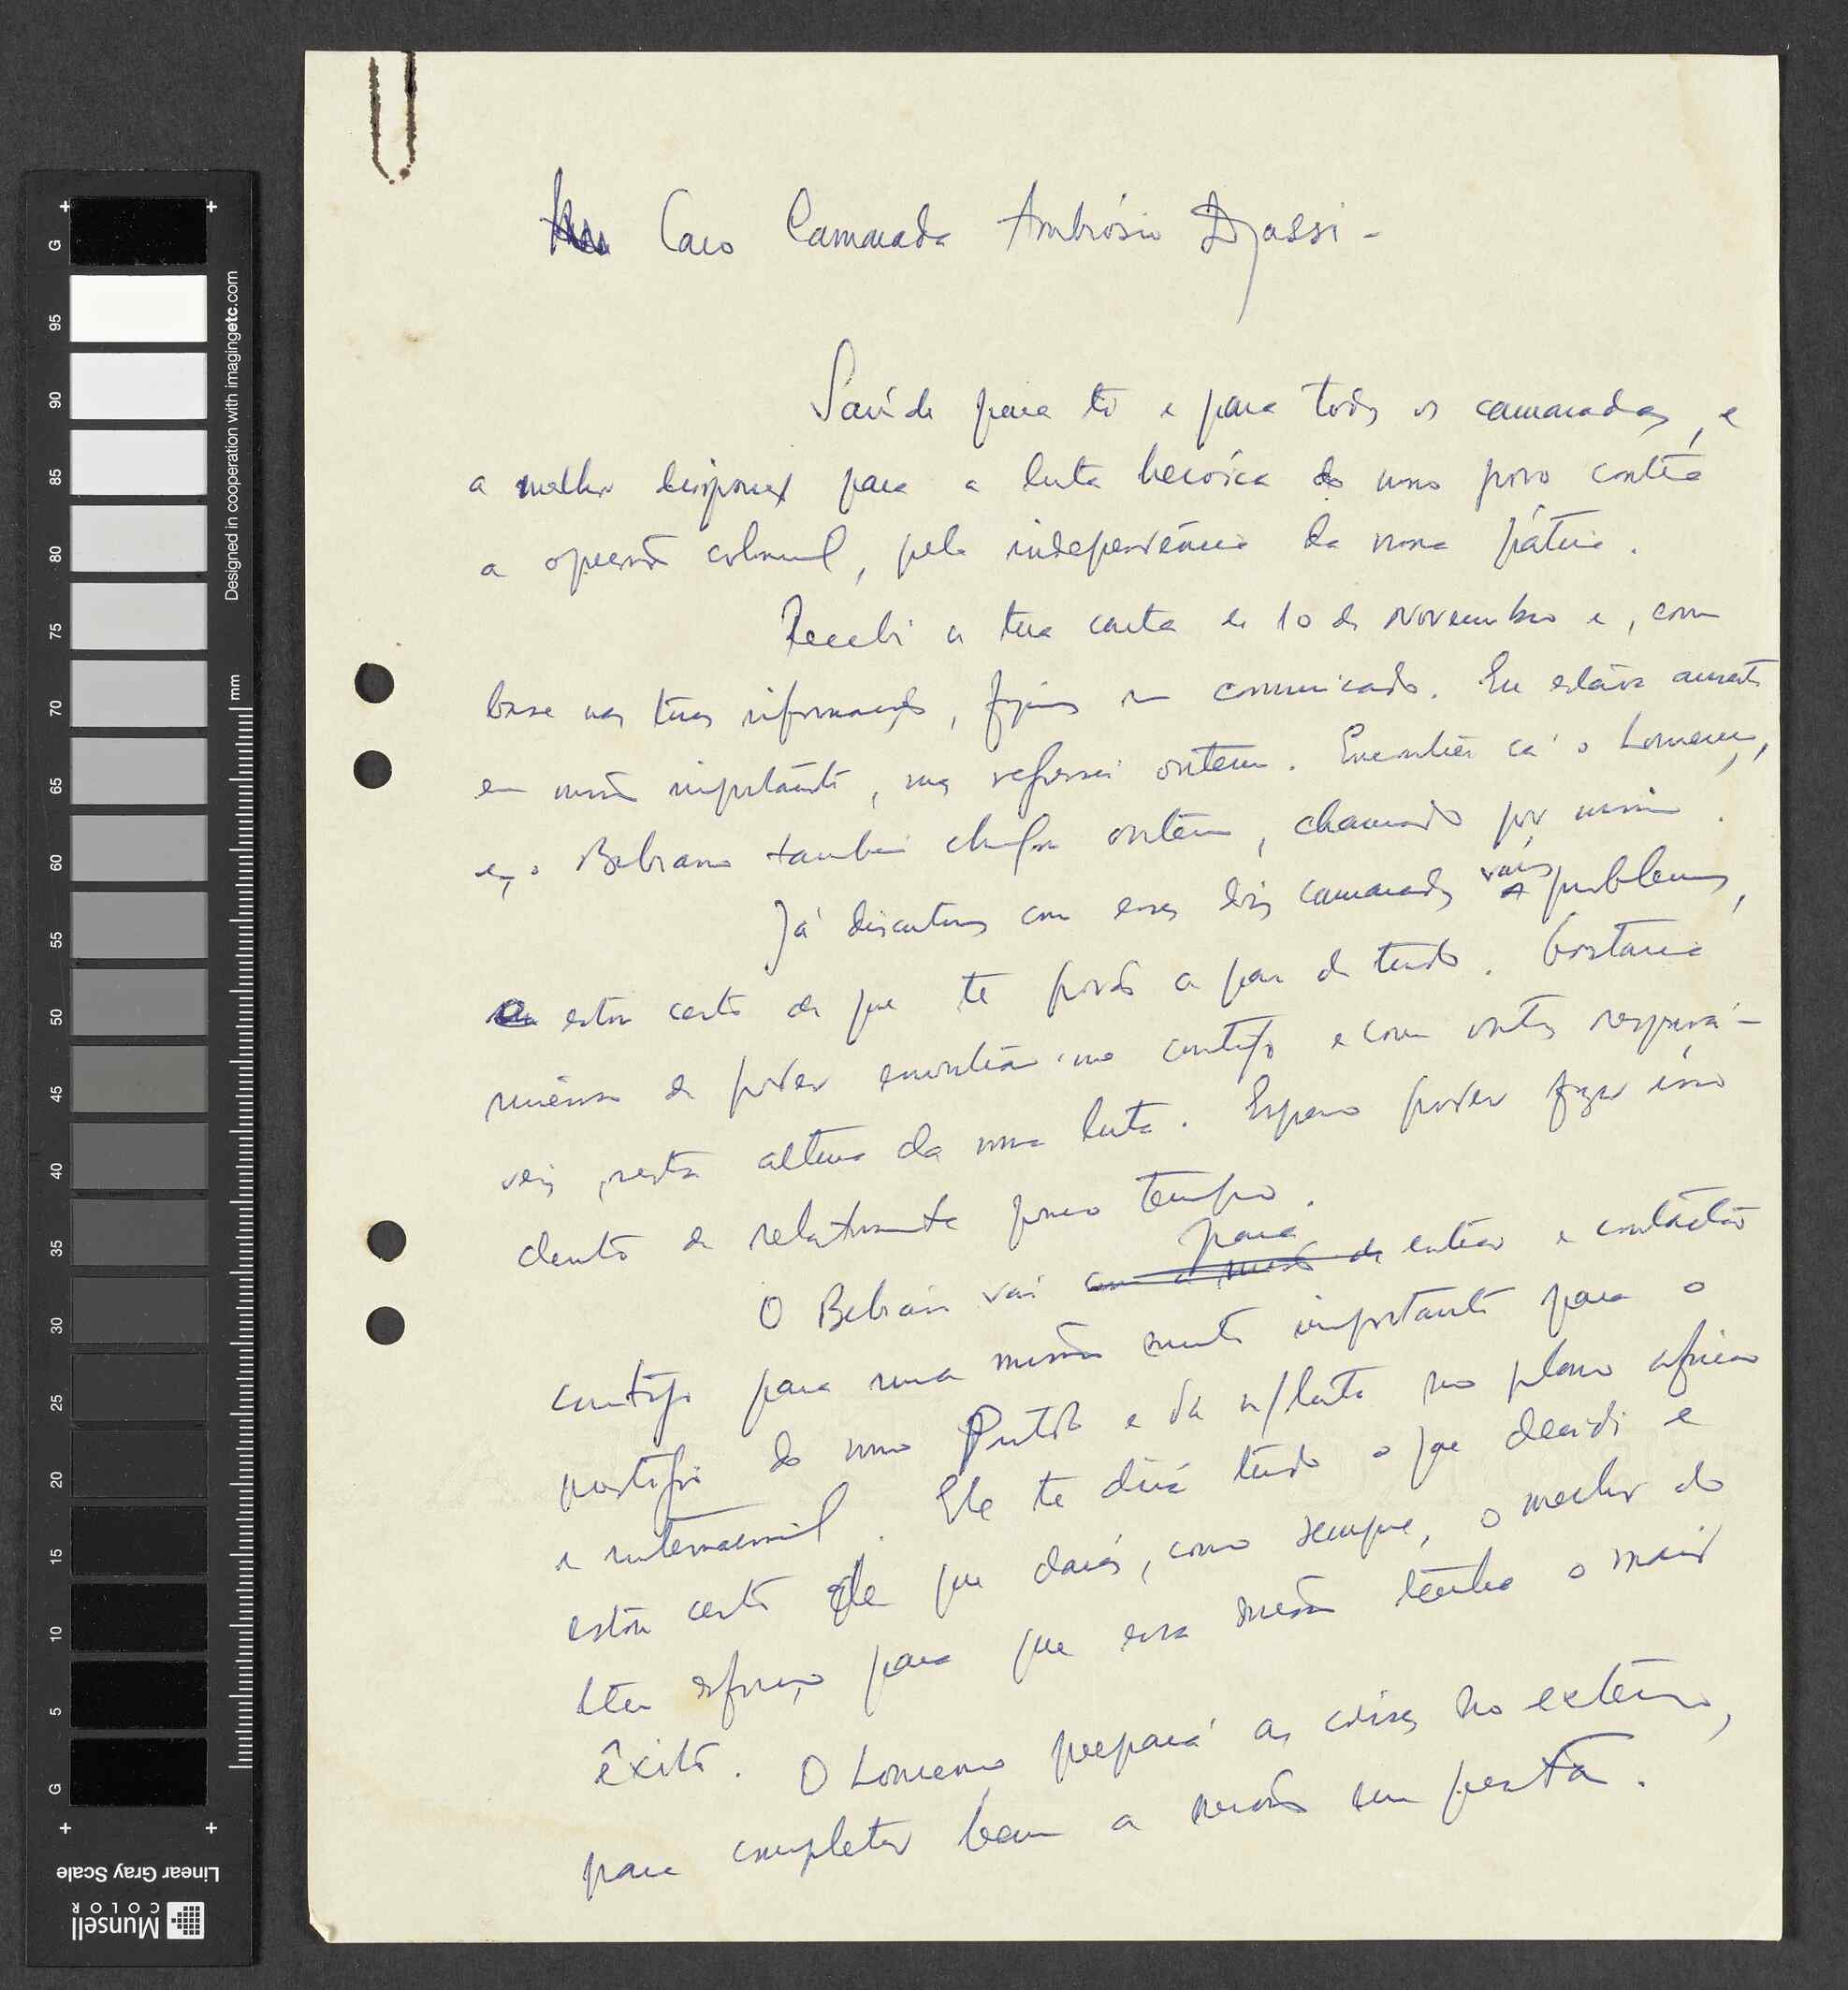 Caro Camarada Ambrósio Djassi -
Saúde para ti e para todos os camaradas, e
a melhor disposição para a luta heroica do nosso povo contra
a opressão colonial, pela independência da nossa pátria.
Recebi a tua carta de 10 de Novembro e, com
base nas tuas informações, fizemos um comunicado. Eu estava ausente
em missão importante, mas regressei ontem. Encontrei cá o Lourenço,
e, o Bebiano também chegou ontem, chamado por mim.
Já discutimos com esses dois camaradas vários problemas,
estou certo de que te porão a par de tudo. Gostaria
imenso de poder encontrar-me contigo e com outros responsá-
veis, nesta altura da nossa luta. Espero poder fazer isso
dentro de relativamente pouco tempo.
O Bebiano vai para entrar e contactar
contigo para uma missão muito importante para o
prestígio do nosso Partido e da n/luta no plano africano
e internacional. Ele te dirá tudo o que decidi e
estou certo de que darás, como sempre, o melhor do
teu esforço para que essa missão tenha o maior
êxito. O Lourenço preparará as coisas no exterior,
para completar bem a missão em questão.
G 95 90 85 80 75 70 65 60 55 50 45 40 35 30 25 20 15 10 5 G
Designed in cooperation with imagingetc.com
mm
Linear Gray Scale
Munsell
COLOR